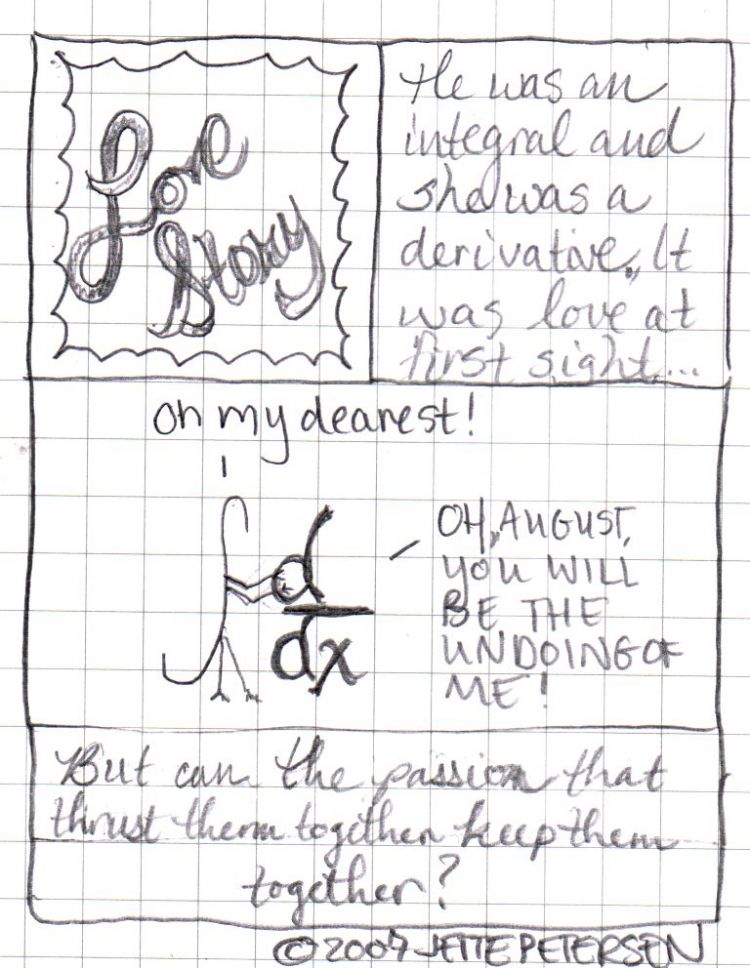 Love
Story
He was an
integral and
she was a
derivative. It
was love at
first sight...
oh my dearest!
OH, AUGUST,
YOU WILL
BE THE
UNDOING OF
ME!
d
dx
But can the passion that
thrust them together keep them
together?
© 2007 JETTE PETERSEN